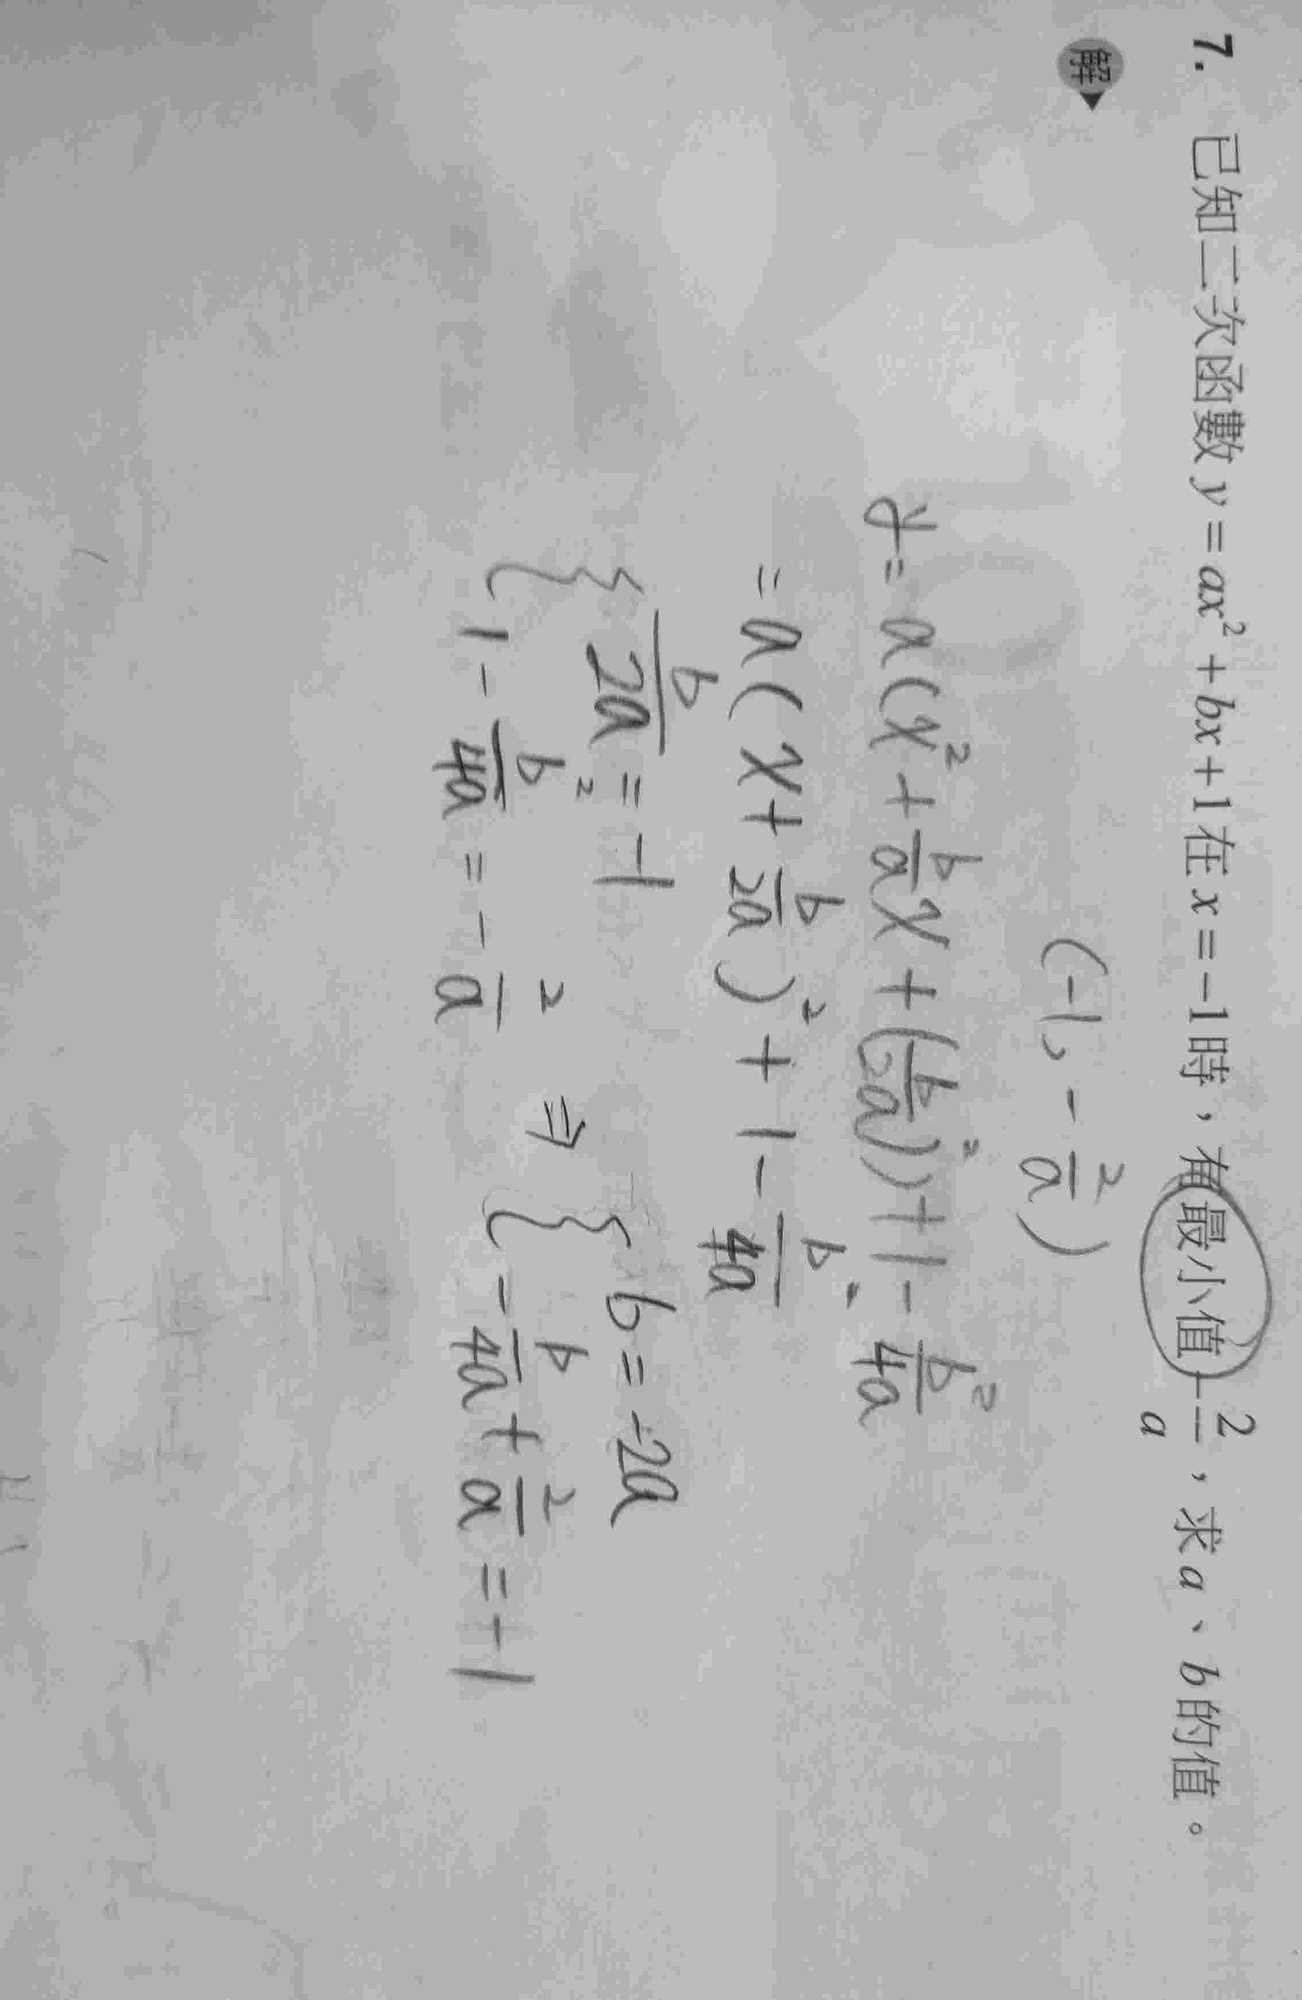 7. 已知二次函數 y = ax² + bx + 1 在 x = −1 時，有最小值 −2/a，求 a、b 的值。
解
(-1, -2/a)
y = a(x² + b/a x + (b/2a)²) + 1 - b²/4a
= a(x + b/2a)² + 1 - b²/4a
{ b/2a = -1
{ 1 - b²/4a = -2/a ⇒ { b = -2a
{ -b/4a + 2/a = -1